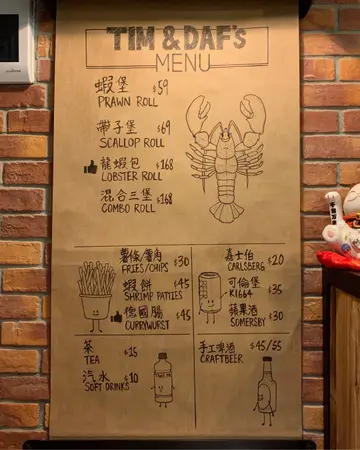 TIM & DAF's
MENU
蝦堡 $59
PRAWN ROLL
帶子堡 $69
SCALLOP ROLL
龍蝦包 $168
LOBSTER ROLL
混合三堡 $168
COMBO ROLL
薯條/薯角 $30
FRIES/CHIPS
蝦餅 $45
SHRIMP PATTIES
德國腸 $45
CURRYWURST
嘉士伯 $20
CARLSBERG
可倫堡 $35
K1664
蘋果酒 $30
SOMERSBY
茶 $15
TEA
汽水 $10
SOFT DRINKS
手工啤酒 $45/55
CRAFTBEER